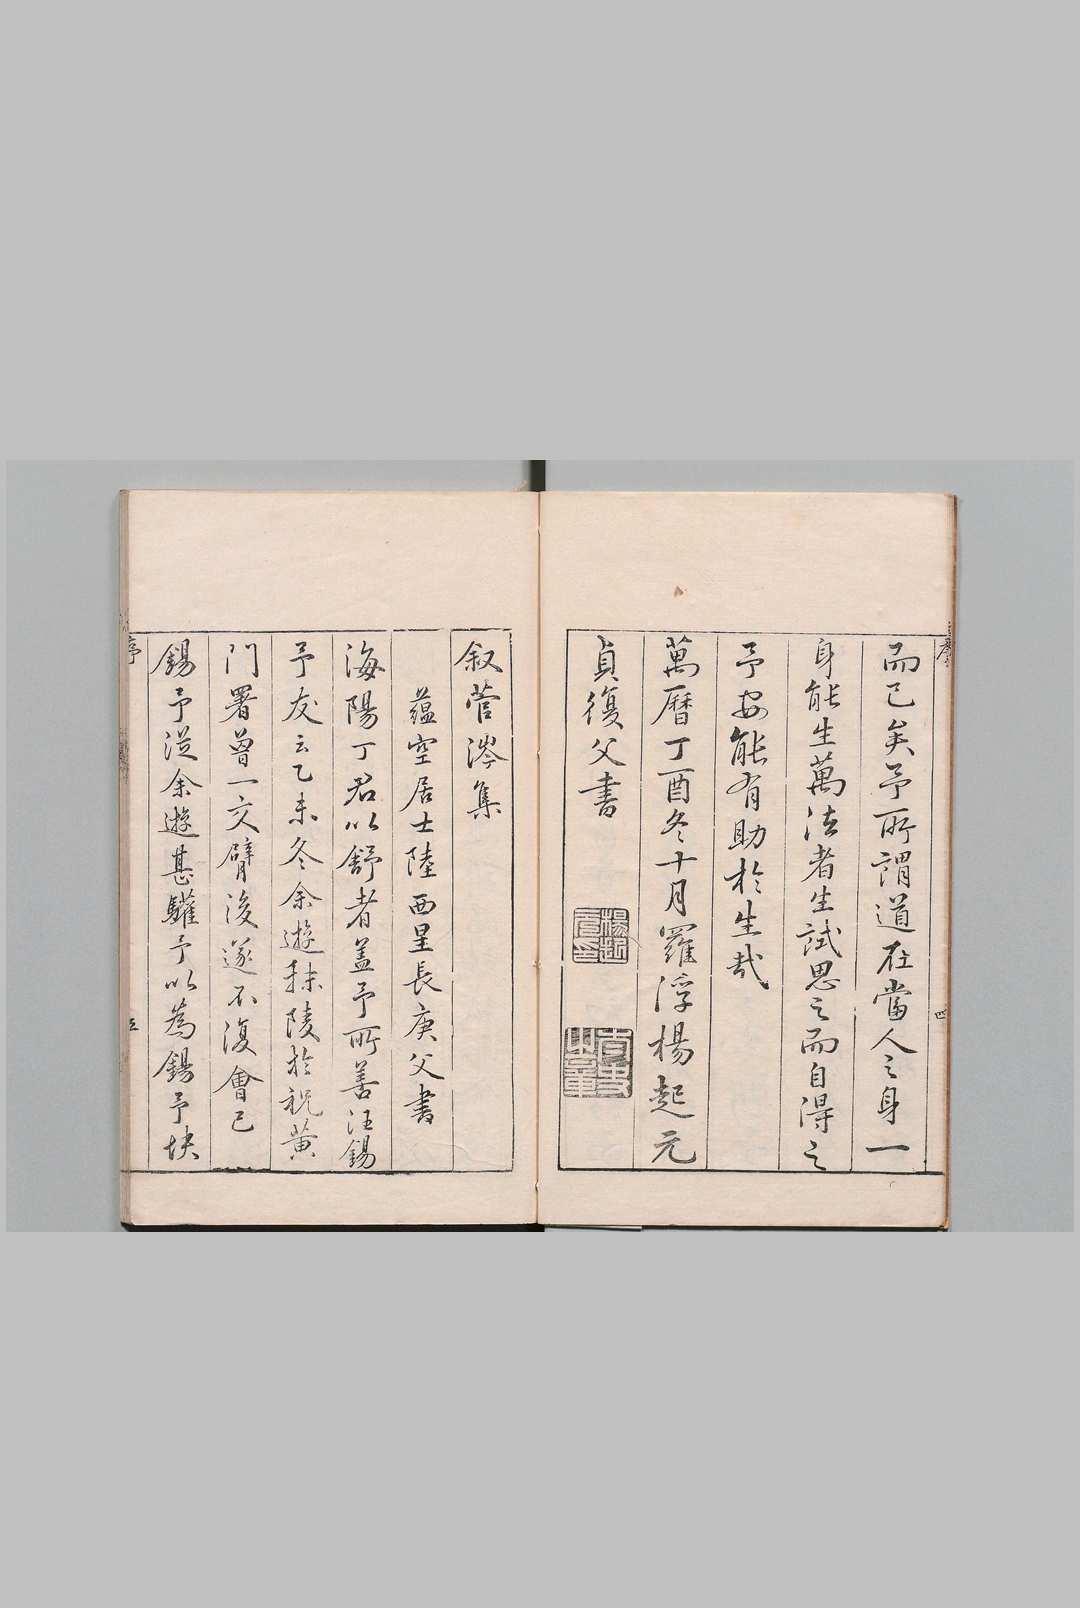 而已矣予所謂道在當人之身一
身能生萬法者生試思之而自得之
予安能有助於生哉
萬曆丁酉冬十月羅浮楊起元
貞復父書
楊起元印
序
四
叙菅涔集
蘊空居士陸西星長庚父書
海陽丁君以舒者蓋予所善汪錫
予友云乙未冬余遊秣陵於祝黃
門署曾一交臂後遂不復會已
錫予從余遊甚驩予以為錫予快
序
五